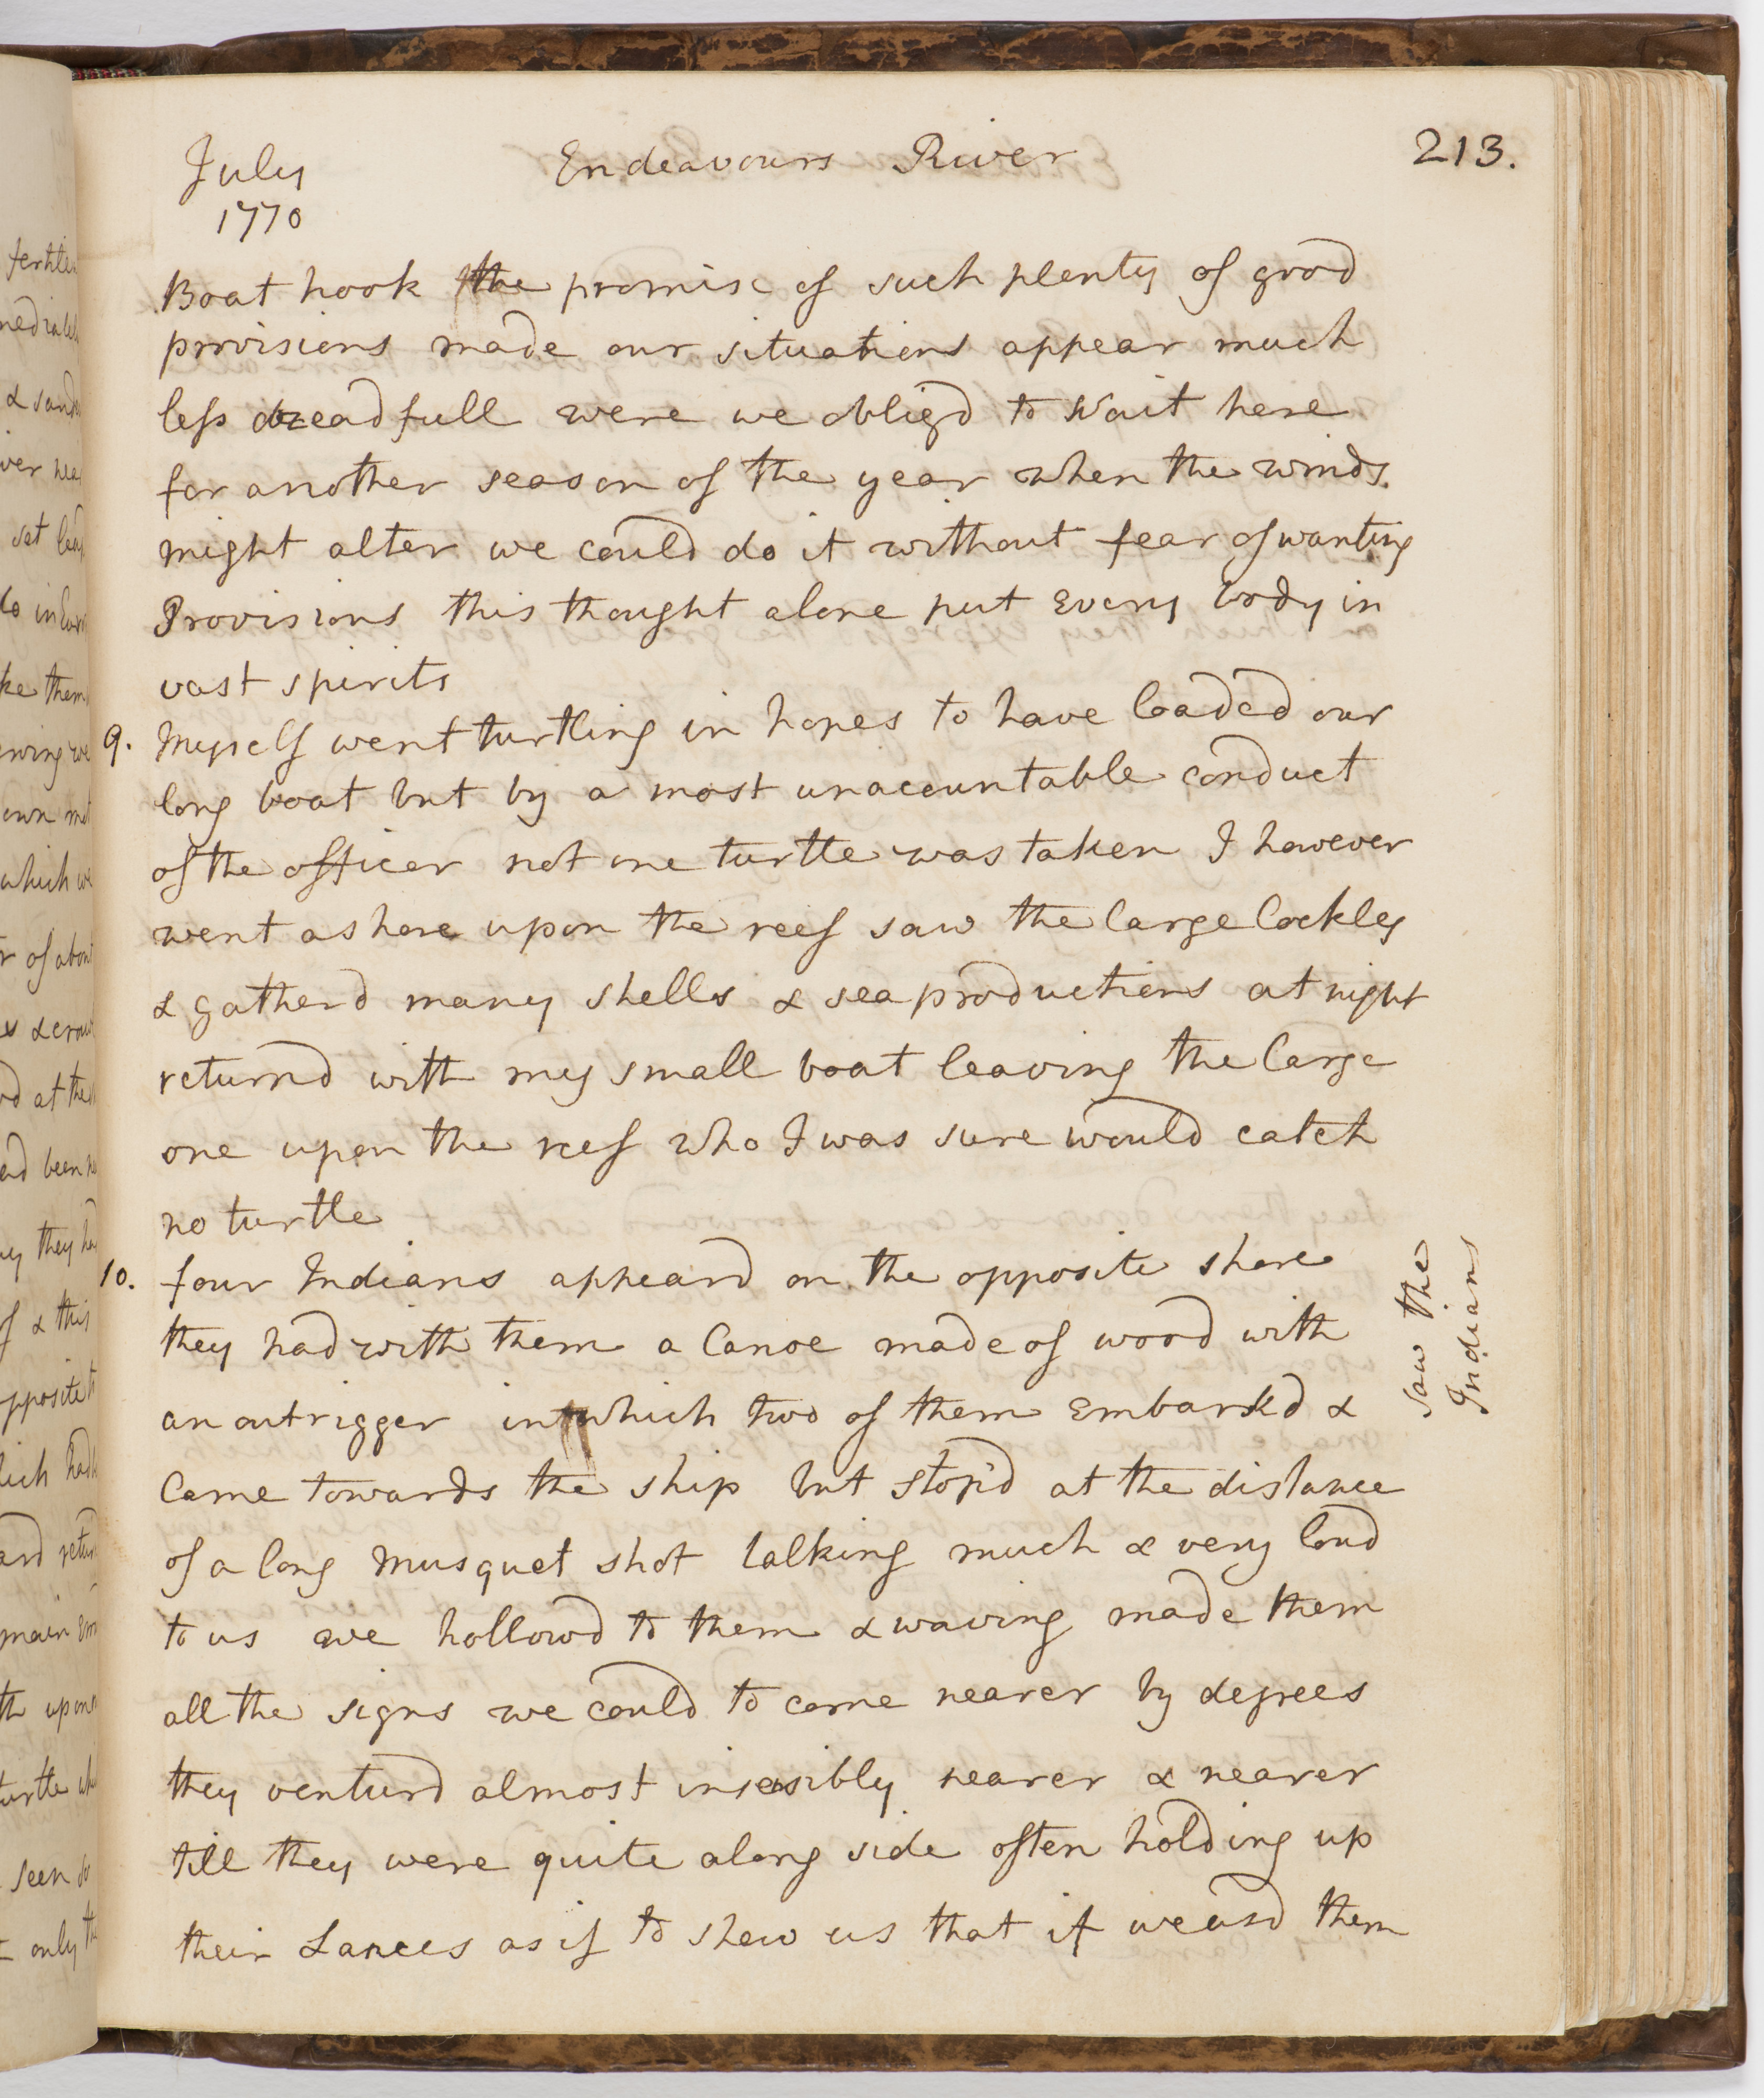 July
1770
Endeavours River
213.
Boat hook the promise of such plenty of good
provisions made our situations appear much
less dreadfull were we obligd to Wait here
for another season of the year when the winds
might alter we could do it without fear of wanting
Provisions this thought alone put Every body in
vast spirits
9. Myself went turtling in hopes to have loaded our
long boat but by a most unaccountable conduct
of the officer not one turtle was taken I however
went ashore upon the reef saw the large Cockles
& gatherd many shells & sea productions at night
returnd with my small boat leaving the large
one upon the reef who I was sure would catch
no turtle
10. four Indians appeard on the opposite shore
they had with them a Canoe made of wood with
an outrigger in which two of them Embarkd &
Came towards the ship but stop'd at the distance
of a long Musquet shot talking much & very loud
to us we hollowd to them & waving made them
all the signs we could to come nearer by degrees
they venturd almost insensibly nearer & nearer
till they were quite along side often holding up
their Lances as if to shew us that if we usd them
Saw the
Indians